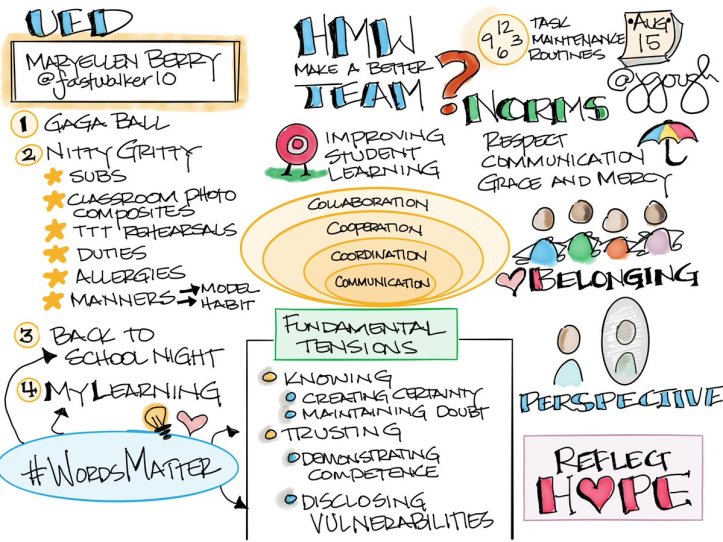 UED
MARYELLEN BERRY
@fastwalker10
1 GAGA BALL
2 NITTY GRITTY
SUBS
CLASSROOM PHOTO
COMPOSITES
TTT REHEARSALS
DUTIES
ALLERGIES
MANNERS → MODEL
→ HABIT
3 BACK TO
SCHOOL NIGHT
4 MY LEARNING
#WORDSMATTER
HMW
MAKE A BETTER
TEAM?
IMPROVING
STUDENT
LEARNING
COLLABORATION
COOPERATION
COORDINATION
COMMUNICATION
FUNDAMENTAL
TENSIONS
KNOWING
CREATING CERTAINTY
MAINTAINING DOUBT
TRUSTING
DEMONSTRATING
COMPETENCE
DISCLOSING
VULNERABILITIES
12
9 3
6
TASK
MAINTENANCE
ROUTINES
AUG
15
@jgough
NORMS
RESPECT
COMMUNICATION
GRACE AND MERCY
BELONGING
PERSPECTIVE
REFLECT
HOPE